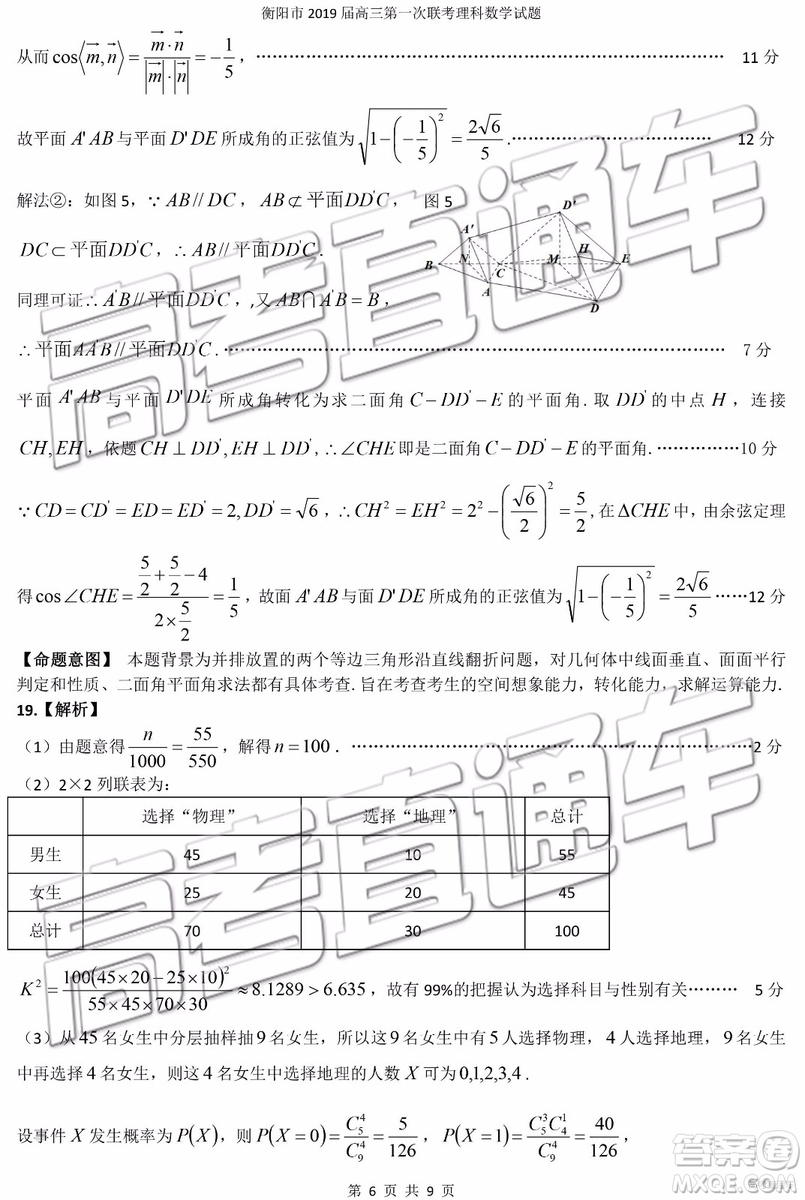 衡阳市 2019 届高三第一次联考理科数学试题
从而 cos⟨m⃗,n⃗⟩ = (m⃗·n⃗)/(|m⃗|·|n⃗|) = −1/5，…………………………………………………… 11 分
故平面 A'AB 与平面 D'DE 所成角的正弦值为 √(1−(−1/5)²) = 2√6/5 .………………………… 12 分
解法②：如图 5，∵ AB // DC，AB ⊄ 平面DD'C， 图 5
DC ⊂ 平面DD'C，∴ AB // 平面DD'C .
同理可证∴ A'B // 平面DD'C，,又 AB∩A'B = B，
A' D' H B N C M E A D
∴ 平面AA'B // 平面DD'C .…………………………………………………… 7 分
平面 A'AB 与平面 D'DE 所成角转化为求二面角 C − DD' − E 的平面角. 取 DD' 的中点 H，连接
CH, EH，依题 CH ⊥ DD', EH ⊥ DD'，∴ ∠CHE 即是二面角 C − DD' − E 的平面角.……………10 分
∵ CD = CD' = ED = ED' = 2, DD' = √6，∴ CH² = EH² = 2² − (√6/2)² = 5/2, 在 ΔCHE 中，由余弦定理
得 cos∠CHE = (5/2 + 5/2 − 4)/(2×5/2) = 1/5，故面 A'AB 与面 D'DE 所成角的正弦值为 √(1−(−1/5)²) = 2√6/5 ……12 分
【命题意图】 本题背景为并排放置的两个等边三角形沿直线翻折问题，对几何体中线面垂直、面面平行
判定和性质、二面角平面角求法都有具体考查. 旨在考查考生的空间想象能力，转化能力，求解运算能力.
19.【解析】
（1）由题意得 n/1000 = 55/550，解得 n = 100 . ……………………………………………2 分
（2）2×2 列联表为：
选择“物理” 选择“地理” 总计
男生 45 10 55
女生 25 20 45
总计 70 30 100
K² = 100(45×20−25×10)²/(55×45×70×30) ≈ 8.1289 > 6.635，故有 99%的把握认为选择科目与性别有关……… 5 分
（3）从 45 名女生中分层抽样抽 9 名女生，所以这 9 名女生中有 5 人选择物理，4 人选择地理，9 名女
生中再选择 4 名女生，则这 4 名女生中选择地理的人数 X 可为 0,1,2,3,4 .
设事件 X 发生概率为 P(X)，则 P(X = 0) = C₅⁴/C₉⁴ = 5/126，P(X = 1) = C₅³C₄¹/C₉⁴ = 40/126，
第 6 页 共 9 页
高考直通车
高考直通车
答案圈
MXQE.COM